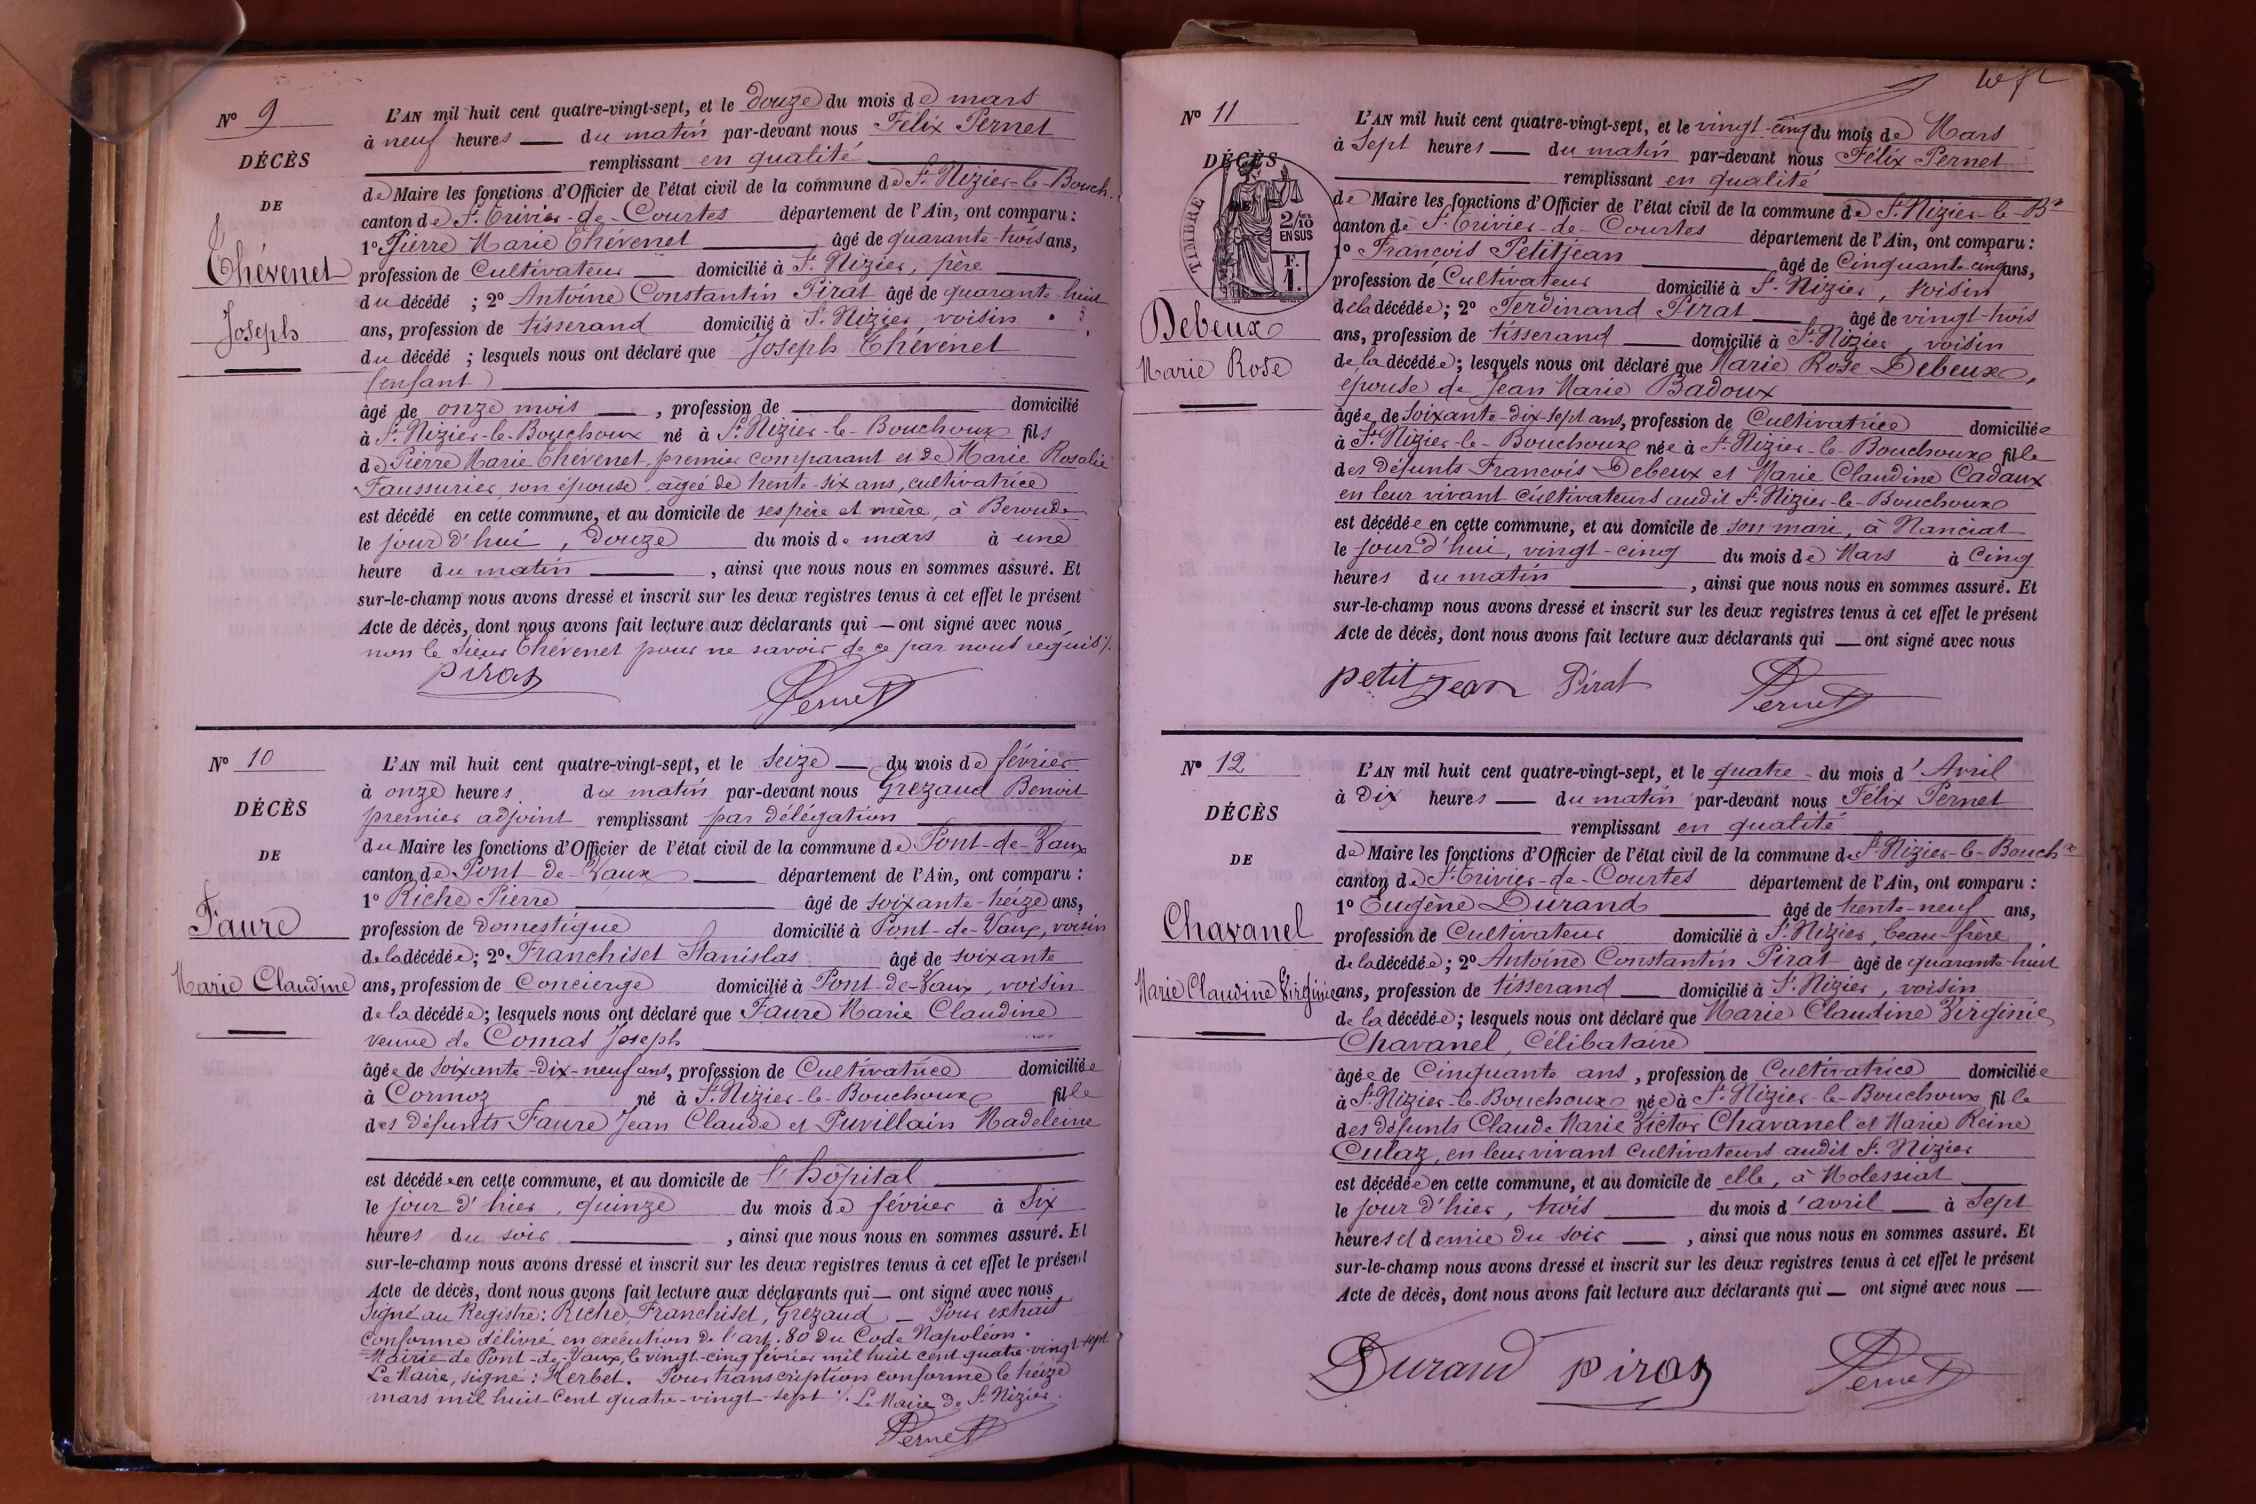 Nº 9
DÉCÈS
DE
Thévenet
Joseph
L'AN mil huit cent quatre-vingt-sept, et le douze du mois de mars
à neuf heures — du matin par-devant nous Félix Pernet
remplissant en qualité
de Maire les fonctions d'Officier de l'état civil de la commune de St Nizier-le-Bouch.
canton de St Trivier-de-Courtes département de l'Ain, ont comparu :
1º Pierre Marie Thévenet âgé de quarante-trois ans,
profession de Cultivateur — domicilié à St Nizier, père
du décédé ; 2º Antoine Constantin Pirat âgé de quarante-huit
ans, profession de tisserand domicilié à St Nizier, voisin
du décédé ; lesquels nous ont déclaré que Joseph Thévenet
(enfant)
âgé de onze mois —, profession de — domicilié
à St Nizier-le-Bouchoux né à St Nizier-le-Bouchoux fils
de Pierre Marie Thévenet, premier comparant et de Marie Rosalie
Faussurier, son épouse, agée de trente-six ans, cultivatrice
est décédé en cette commune, et au domicile de ses père et mère, à
le jour d'hui, douze du mois de mars à une
heure du matin —, ainsi que nous nous en sommes assuré. Et
sur-le-champ nous avons dressé et inscrit sur les deux registres tenus à cet effet le présent
Acte de décès, dont nous avons fait lecture aux déclarants qui — ont signé avec nous
non le sieur Thévenet pour ne savoir de ce par nous requis ./.
Piras
Pernet
Nº 10
DÉCÈS
DE
Faure
Marie Claudine
L'AN mil huit cent quatre-vingt-sept, et le seize — du mois de février
à onze heures du matin par-devant nous Grezaud Benoit
premier adjoint remplissant par délégation
du Maire les fonctions d'Officier de l'état civil de la commune de Pont-de-Vaux
canton de Pont-de-Vaux — département de l'Ain, ont comparu :
1º Riche Pierre âgé de soixante-treize ans,
profession de domestique domicilié à Pont-de-Vaux, voisin
de la décédée ; 2º Franchiset Stanislas âgé de soixante
ans, profession de Concierge domicilié à Pont-de-Vaux, voisin
de la décédée ; lesquels nous ont déclaré que Faure Marie Claudine
veuve de Comas Joseph
âgée de soixante-dix-neuf ans, profession de Cultivatrice domiciliée
à Cormoz né à St Nizier-le-Bouchoux fille
des défunts Faure Jean Claude et Puvillain Madeleine
est décédée en cette commune, et au domicile de l'hôpital
le jour d'hier, quinze du mois de février à six
heures du soir —, ainsi que nous nous en sommes assuré. Et
sur-le-champ nous avons dressé et inscrit sur les deux registres tenus à cet effet le présent
Acte de décès, dont nous avons fait lecture aux déclarants qui — ont signé avec nous
Signé au Registre : Riche, Franchiset, Grezaud — Pour extrait
conforme délivré en exécution de l'art. 80 du Code Napoléon.
Mairie de Pont-de-Vaux, le vingt-cinq février mil huit cent quatre-vingt-sept
Le Maire, signé : Herbet. Pour transcription conforme le treize
mars mil huit-cent quatre-vingt-sept ./. Le Maire de St Nizier.
Pernet
Nº 11
DÉCÈS
TIMBRE
2/10
EN SUS
F.
1.
Debeux
Marie Rose
L'AN mil huit cent quatre-vingt-sept, et le vingt-cinq du mois de Mars
à Sept heures — du matin par-devant nous Félix Pernet
remplissant en qualité
de Maire les fonctions d'Officier de l'état civil de la commune de St Nizier-le-Bx
canton de St Trivier-de-Courtes département de l'Ain, ont comparu :
1º François Petitjean âgé de Cinquante-cinq ans,
profession de Cultivateur domicilié à St Nizier, voisin
de la décédée ; 2º Ferdinand Pirat — âgé de vingt-trois
ans, profession de tisserand — domicilié à St Nizier, voisin
de la décédée ; lesquels nous ont déclaré que Marie Rose Debeux,
épouse de Jean Marie Badoux
âgée de soixante-dix-sept ans, profession de Cultivatrice domiciliée
à St Nizier-le-Bouchoux née à St Nizier-le-Bouchoux fille
des défunts François Debeux et Marie Claudine Cadaux
en leur vivant cultivateurs audit St Nizier-le-Bouchoux
est décédée en cette commune, et au domicile de son mari, à Nanciat
le jour d'hui, vingt-cinq du mois de Mars à Cinq
heures du matin —, ainsi que nous nous en sommes assuré. Et
sur-le-champ nous avons dressé et inscrit sur les deux registres tenus à cet effet le présent
Acte de décès, dont nous avons fait lecture aux déclarants qui — ont signé avec nous
petitjean Pirat Pernet
Nº 12
DÉCÈS
DE
Chavanel
Marie Claudine Virginie
L'AN mil huit cent quatre-vingt-sept, et le quatre du mois d'Avril
à Dix heures — du matin par-devant nous Félix Pernet
remplissant en qualité
de Maire les fonctions d'Officier de l'état civil de la commune de St Nizier-le-Bouchx
canton de St Trivier-de-Courtes département de l'Ain, ont comparu :
1º Eugène Durand — âgé de trente-neuf ans,
profession de Cultivateur domicilié à St Nizier, beau-frère
de la décédée ; 2º Antoine Constantin Pirat âgé de quarante-huit
ans, profession de tisserand — domicilié à St Nizier, voisin
de la décédée ; lesquels nous ont déclaré que Marie Claudine Virginie
Chavanel, Célibataire
âgée de Cinquante ans, profession de Cultivatrice domiciliée
à St Nizier-le-Bouchoux née à St Nizier-le-Bouchoux fille
des défunts Claude Marie Victor Chavanel et Marie Reine
Culaz, en leur vivant Cultivateurs audit St Nizier
est décédée en cette commune, et au domicile de elle, à Molessiat
le jour d'hier, trois — du mois d'avril — à Sept
heures et demie du soir —, ainsi que nous nous en sommes assuré. Et
sur-le-champ nous avons dressé et inscrit sur les deux registres tenus à cet effet le présent
Acte de décès, dont nous avons fait lecture aux déclarants qui — ont signé avec nous —
Durand Piras Pernet